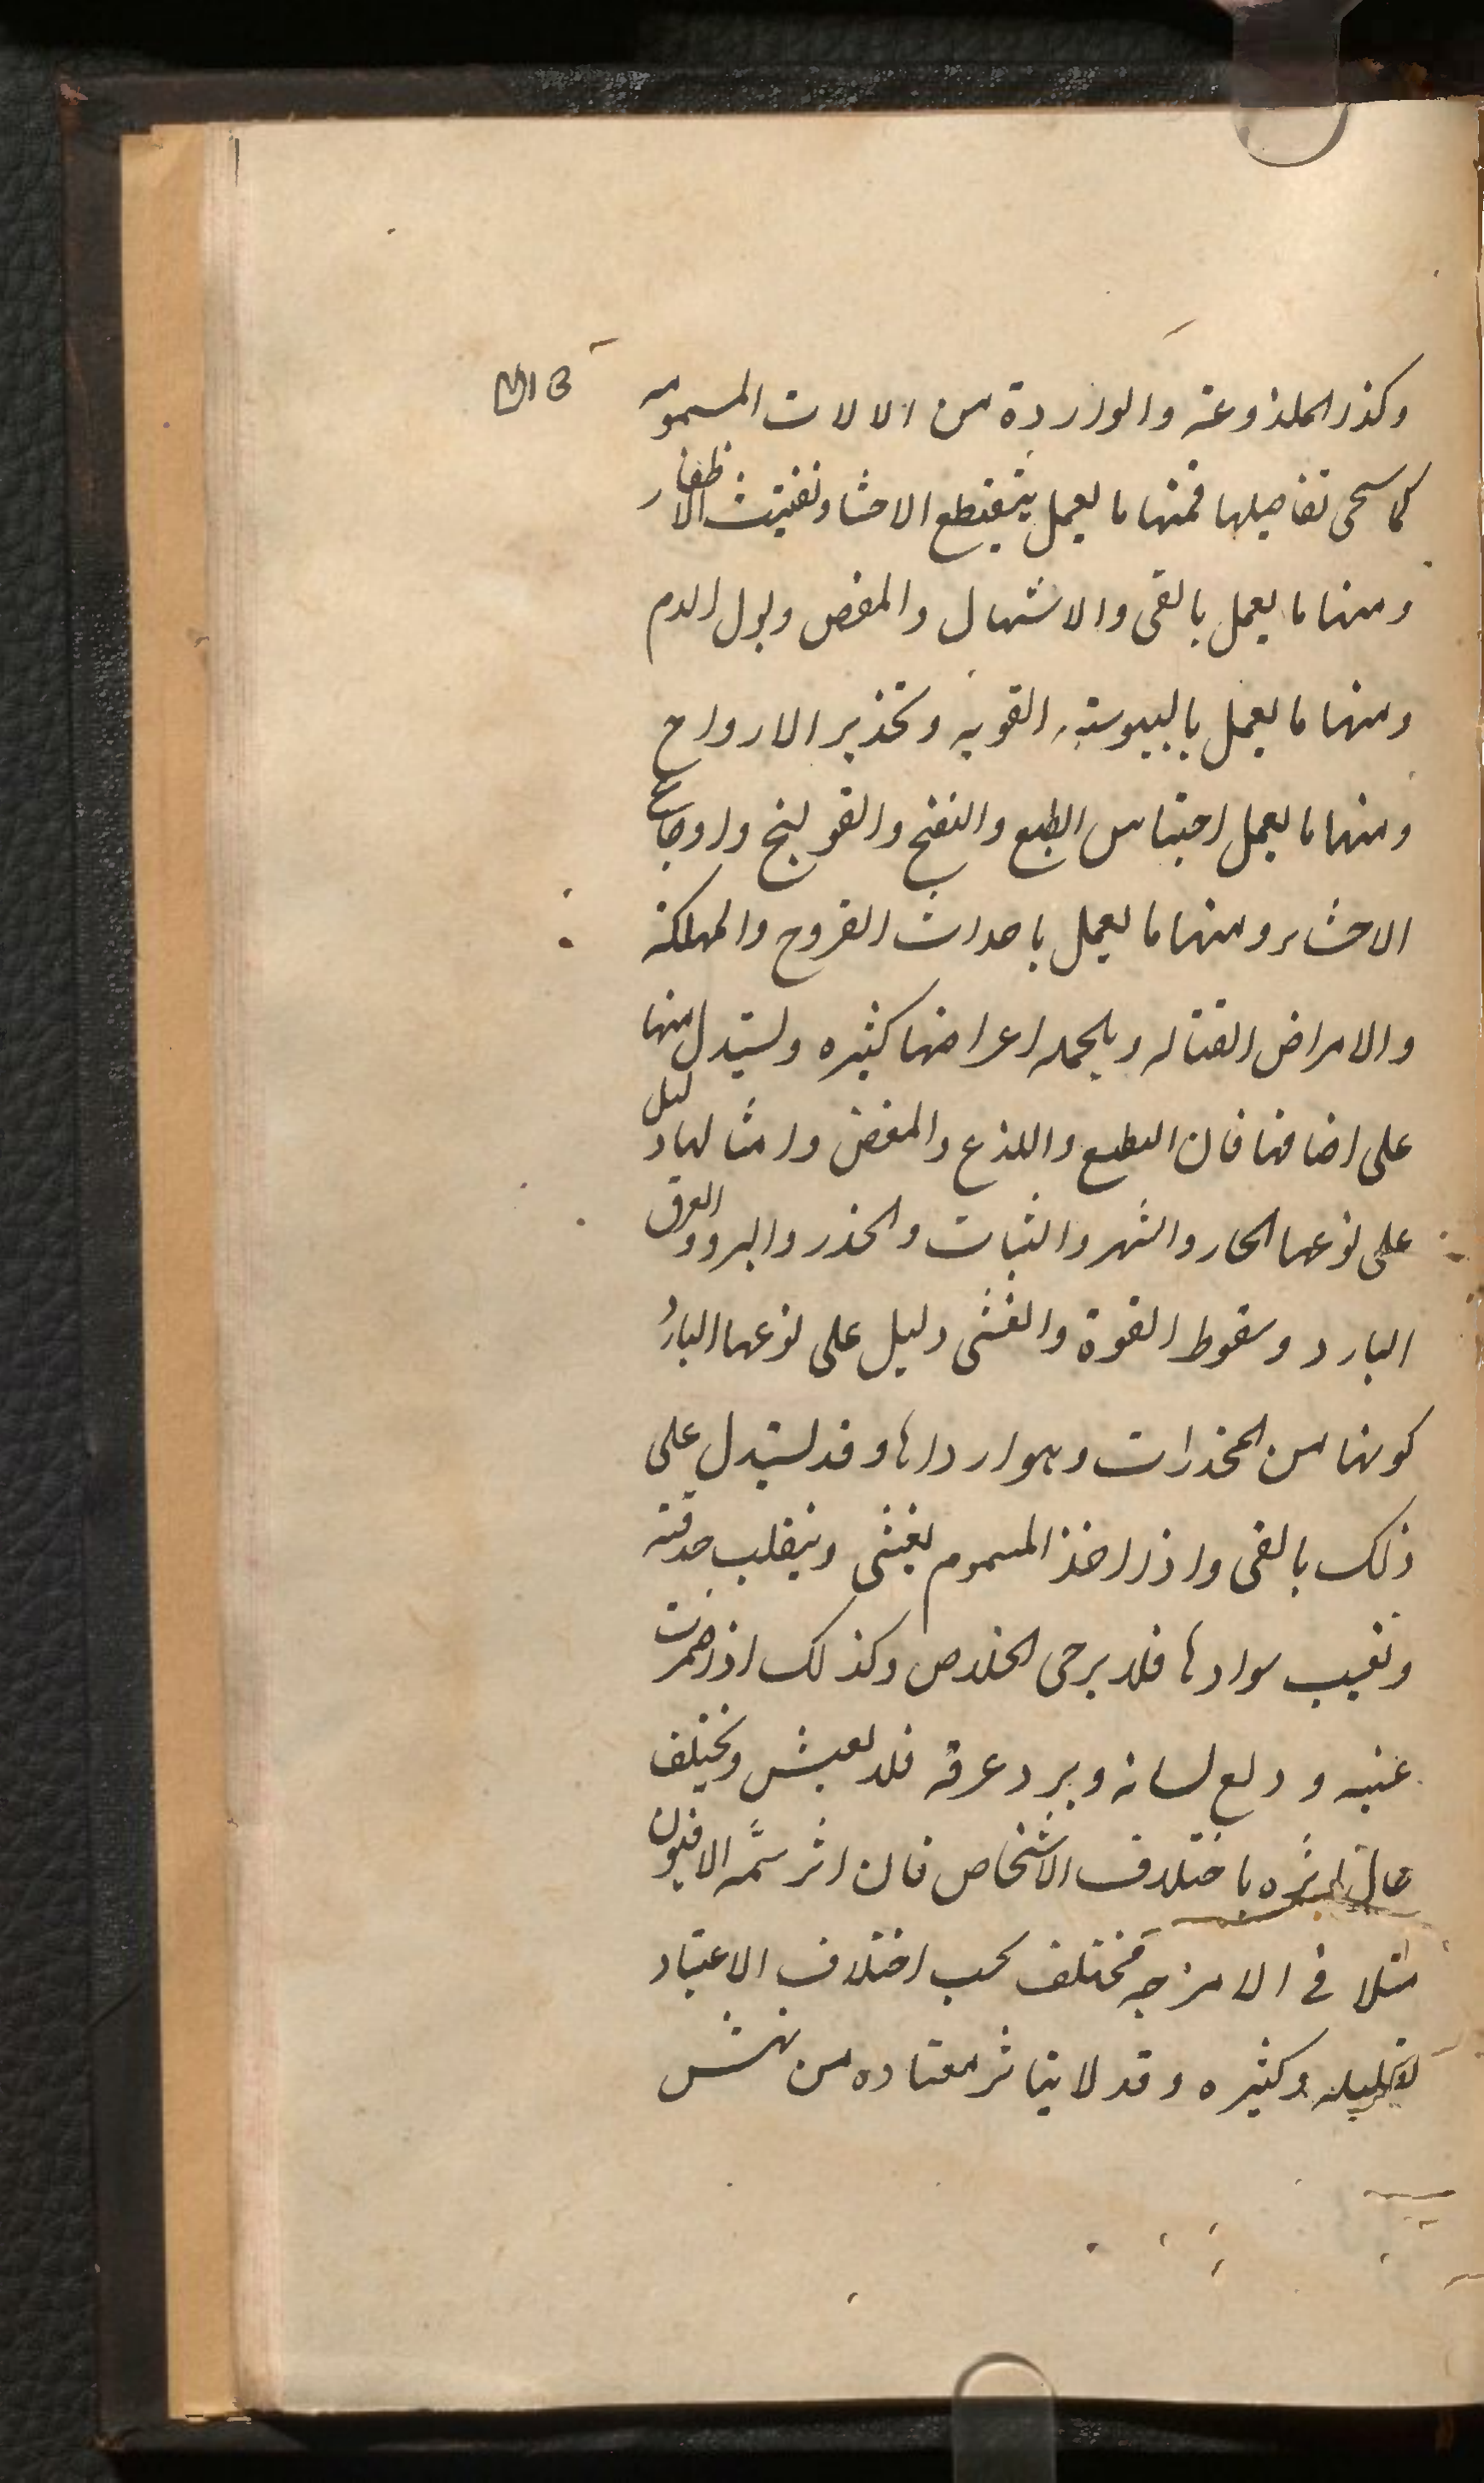 وكذا الملذوعة والواردة من الالات المسمومه
كما سيجى تفاصيلها فمنها ما يعمل بتقطع الاحشا وتفتيت الاظفار
ومنها ما يعمل بالقى والاسهال والمغص وبول الدم
ومنها ما يعمل باليبوسة القويه وتخذير الارواح
ومنها ما يعمل احتباس الطبع والنفخ والقولنج واوجاع
الاحشاء ومنها ما يعمل باحداث القروح والمهلكة
والامراض القتاله وبالجمله اعراضها كثيره ويستدل منها
على اضافها فان التطيع واللذع والمغض وامثالها دليل
على نوعها الحار والسهر والثبات والخذر والبرد والعرق
البارد وسقوط القوة والغشى دليل على نوعها البارد
كونها من المخذرات وهو ارداها وقد يستدل على
ذلك بالقى واذا اخذ المسموم يغشى وينقلب حدقته
وتغيب سوادها فلا يرجى الخلاص وكذلك اذا احمرت
عنيه ودلع لسانه وبرد عرقه فلا يعيش ويختلف
حال اثره باختلاف الاشخاص فان اثر سمه الافيون
مثلا فى الامزجه مختلف بحسب اختلاف الاعتياد
وكثيره وقد لا يتاثر معتاده من نهش